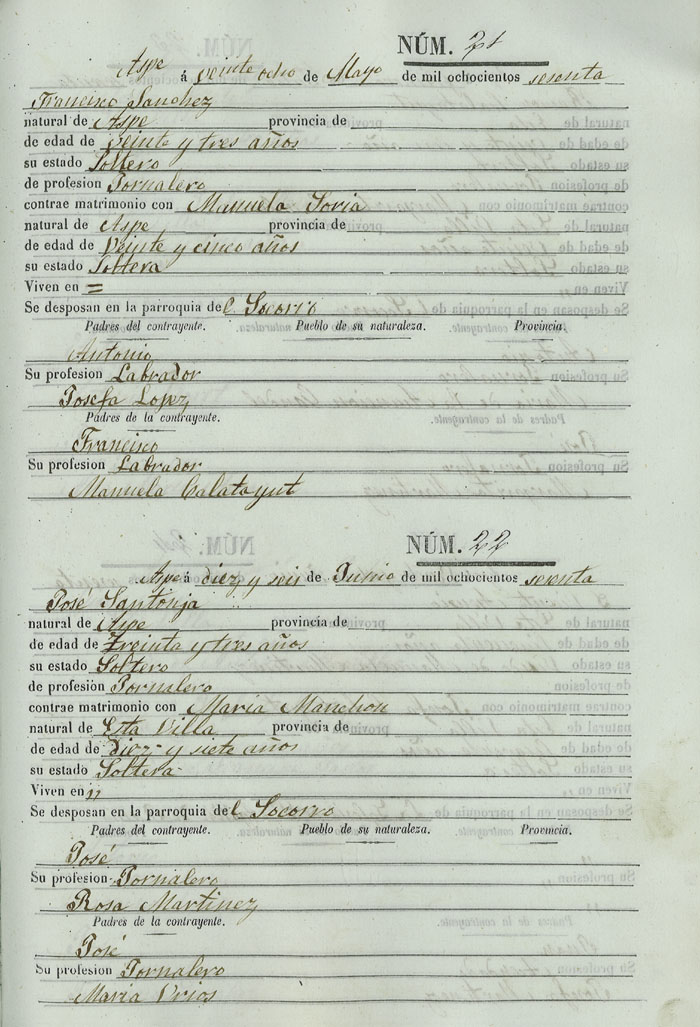 NÚM. 21
Aspe á veinte ocho de Mayo de mil ochocientos sesenta
Francisco Sanchez
natural de Aspe provincia de
de edad de veinte y tres años
su estado Soltero
de profesion Jornalero
contrae matrimonio con Manuela Soria
natural de Aspe provincia de
de edad de Veinte y cinco años
su estado Soltera
Viven en =
Se desposan en la parroquia del Socorro
Padres del contrayente. Pueblo de su naturaleza. Provincia.
Antonio
Su profesion Labrador
Josefa Lopez
Padres de la contrayente.
Francisco
Su profesion Labrador
Manuela Calatayut
NÚM. 22
Aspe á diez y seis de Junio de mil ochocientos sesenta
José Santonja
natural de Aspe provincia de
de edad de Treinta y tres años
su estado Soltero
de profesion Jornalero
contrae matrimonio con Maria Manchon
natural de Esta Villa provincia de
de edad de diez y siete años
su estado Soltera
Viven en "
Se desposan en la parroquia del Socorro
Padres del contrayente. Pueblo de su naturaleza. Provincia.
José
Su profesion Jornalero
Rosa Martinez
Padres de la contrayente.
José
Su profesion Jornalero
Maria Vrios